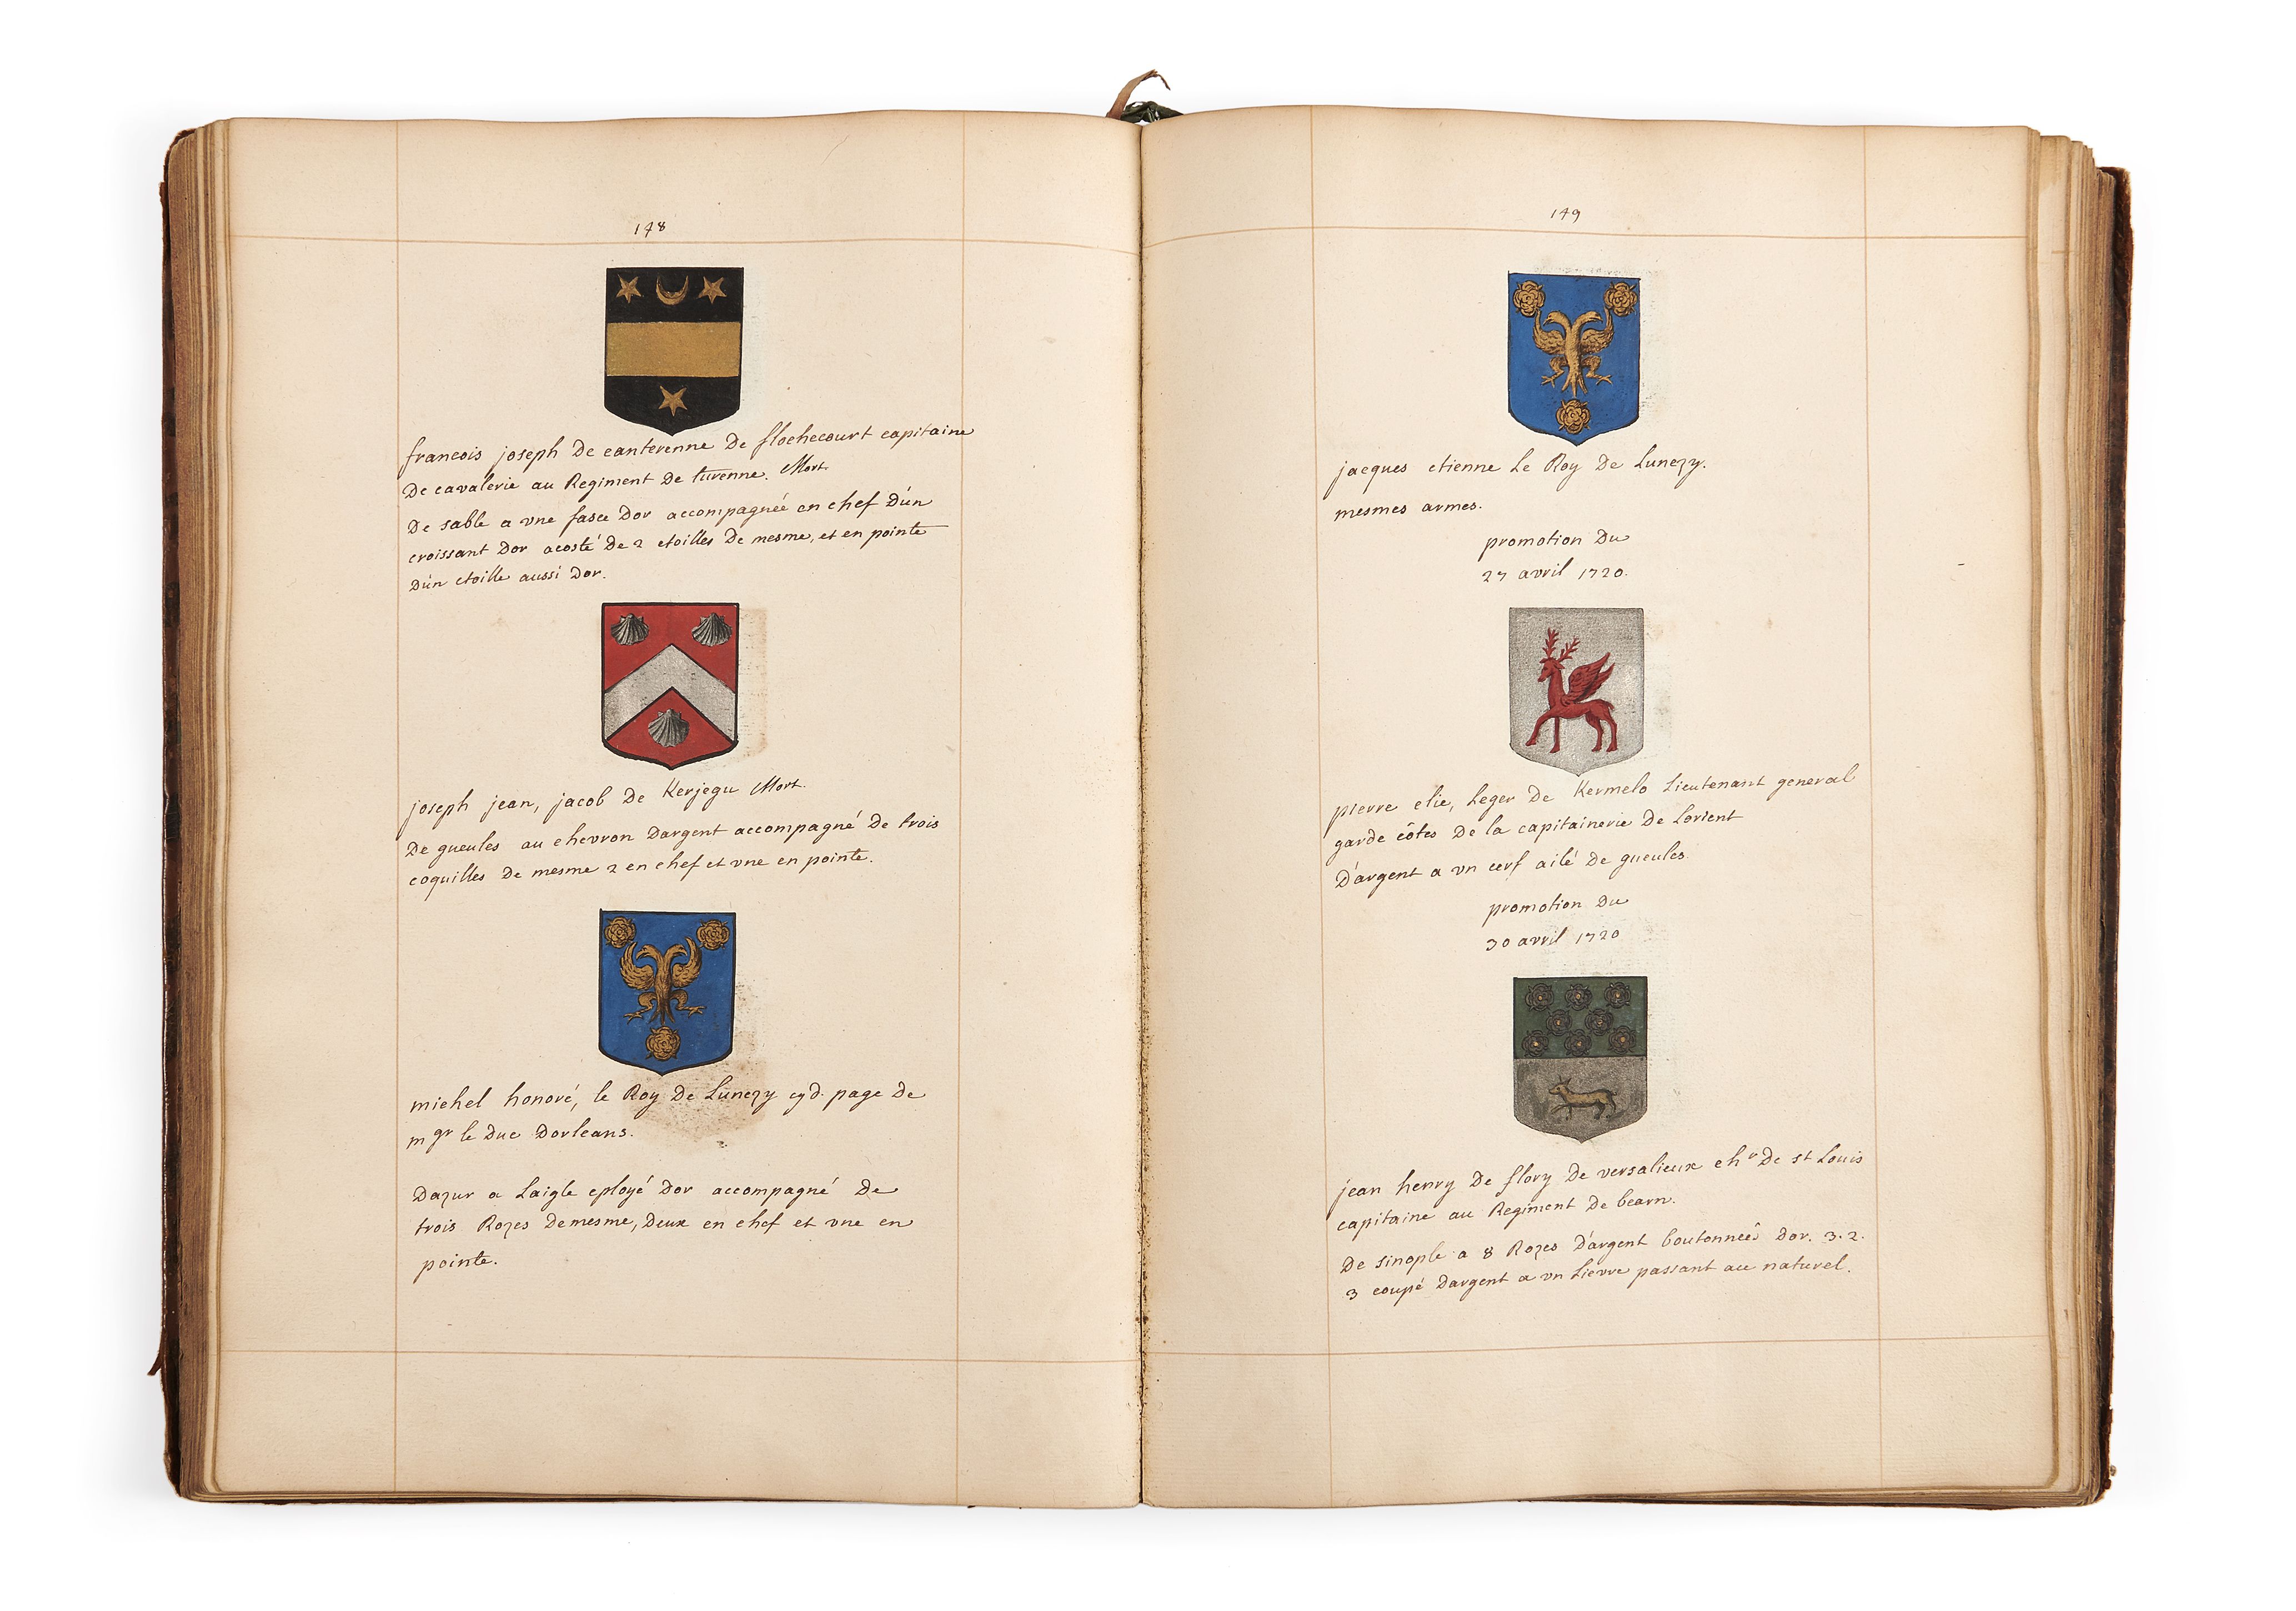 148
francois joseph de canterenne de flochecourt capitaine
De cavalerie au Regiment de turenne. Mort
De sable a vne fasce Dor accompagnéé en chef D'un
croissant Dor acosté De 2 etoilles De mesme, et en pointe
D'un etoille aussi Dor.
joseph jean, jacob De Kerjegu Mort.
De gueules au chevron Dargent accompagné De trois
coquilles De mesme 2 en chef et vne en pointe.
michel honoré, le Roy De Lunezy page de
mgr le Duc Dorleans.
Dazur a Laigle eployé Dor accompagné De
trois Rozes Demesme, Deux en chef et vne en
pointe.
149
jacques etienne Le Roy De Lunezy.
mesmes armes.
promotion Du
27 avril 1720.
pierre elie, Leger De Kermelo Lieutenant general
garde côtes De la capitainerie De Lorient
D'argent a vn cerf ailé De gueules
promotion Du
30 avril 1720
jean henry De flory De versalieux chr De st Louis
capitaine au Regiment De bearn.
De sinople a 8 Rozes D'argent boutonneés Dor. 3. 2.
3 coupé Dargent a vn Lievre passant au naturel.